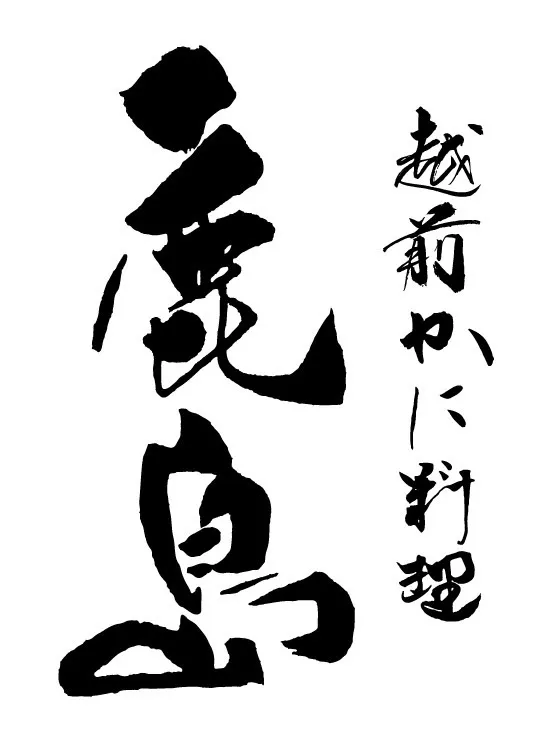 越前かに料理
鹿島